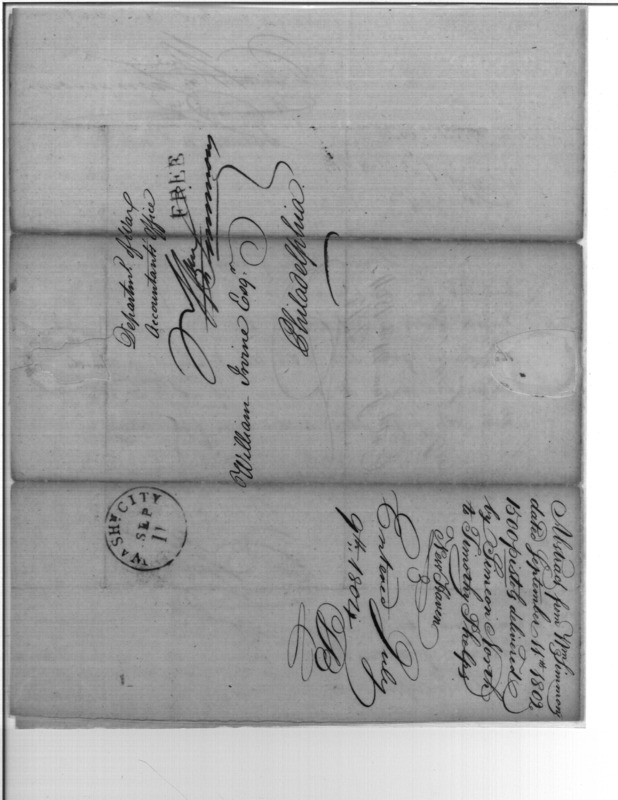 Departmt. of War
Accountants Office
FREE
Wm Simmons
William Irvine Esqr.
Philadelphia.
WASHN. CITY
SEP
11
Abstract from Wm Simmons
dated September 11th 1802
1500 pistols delivered
by Simeon North
to Timothy Phelps
New Haven
Entered July
9th. 1804